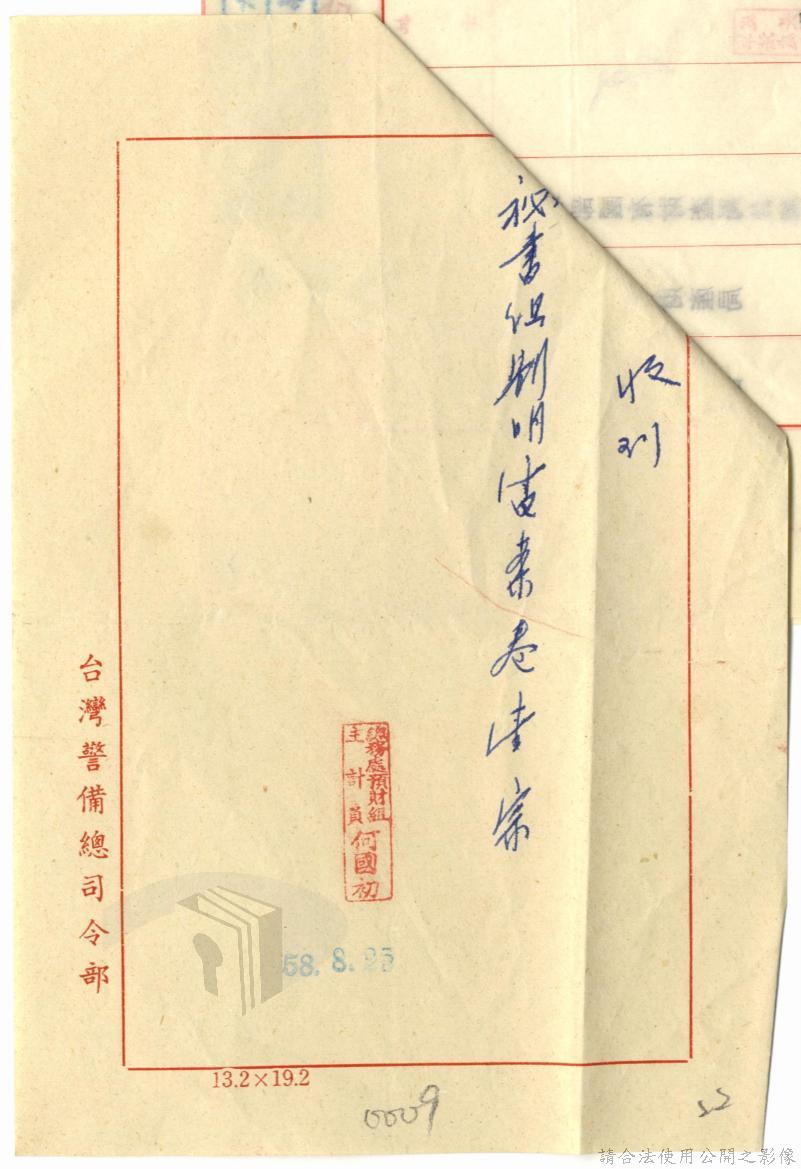 收到
秘書組劉明清案卷清宗
總務處預財組
主計員何國初
58. 8. 25
台灣警備總司令部
13.2×19.2
0009
52
請合法使用公開之影像